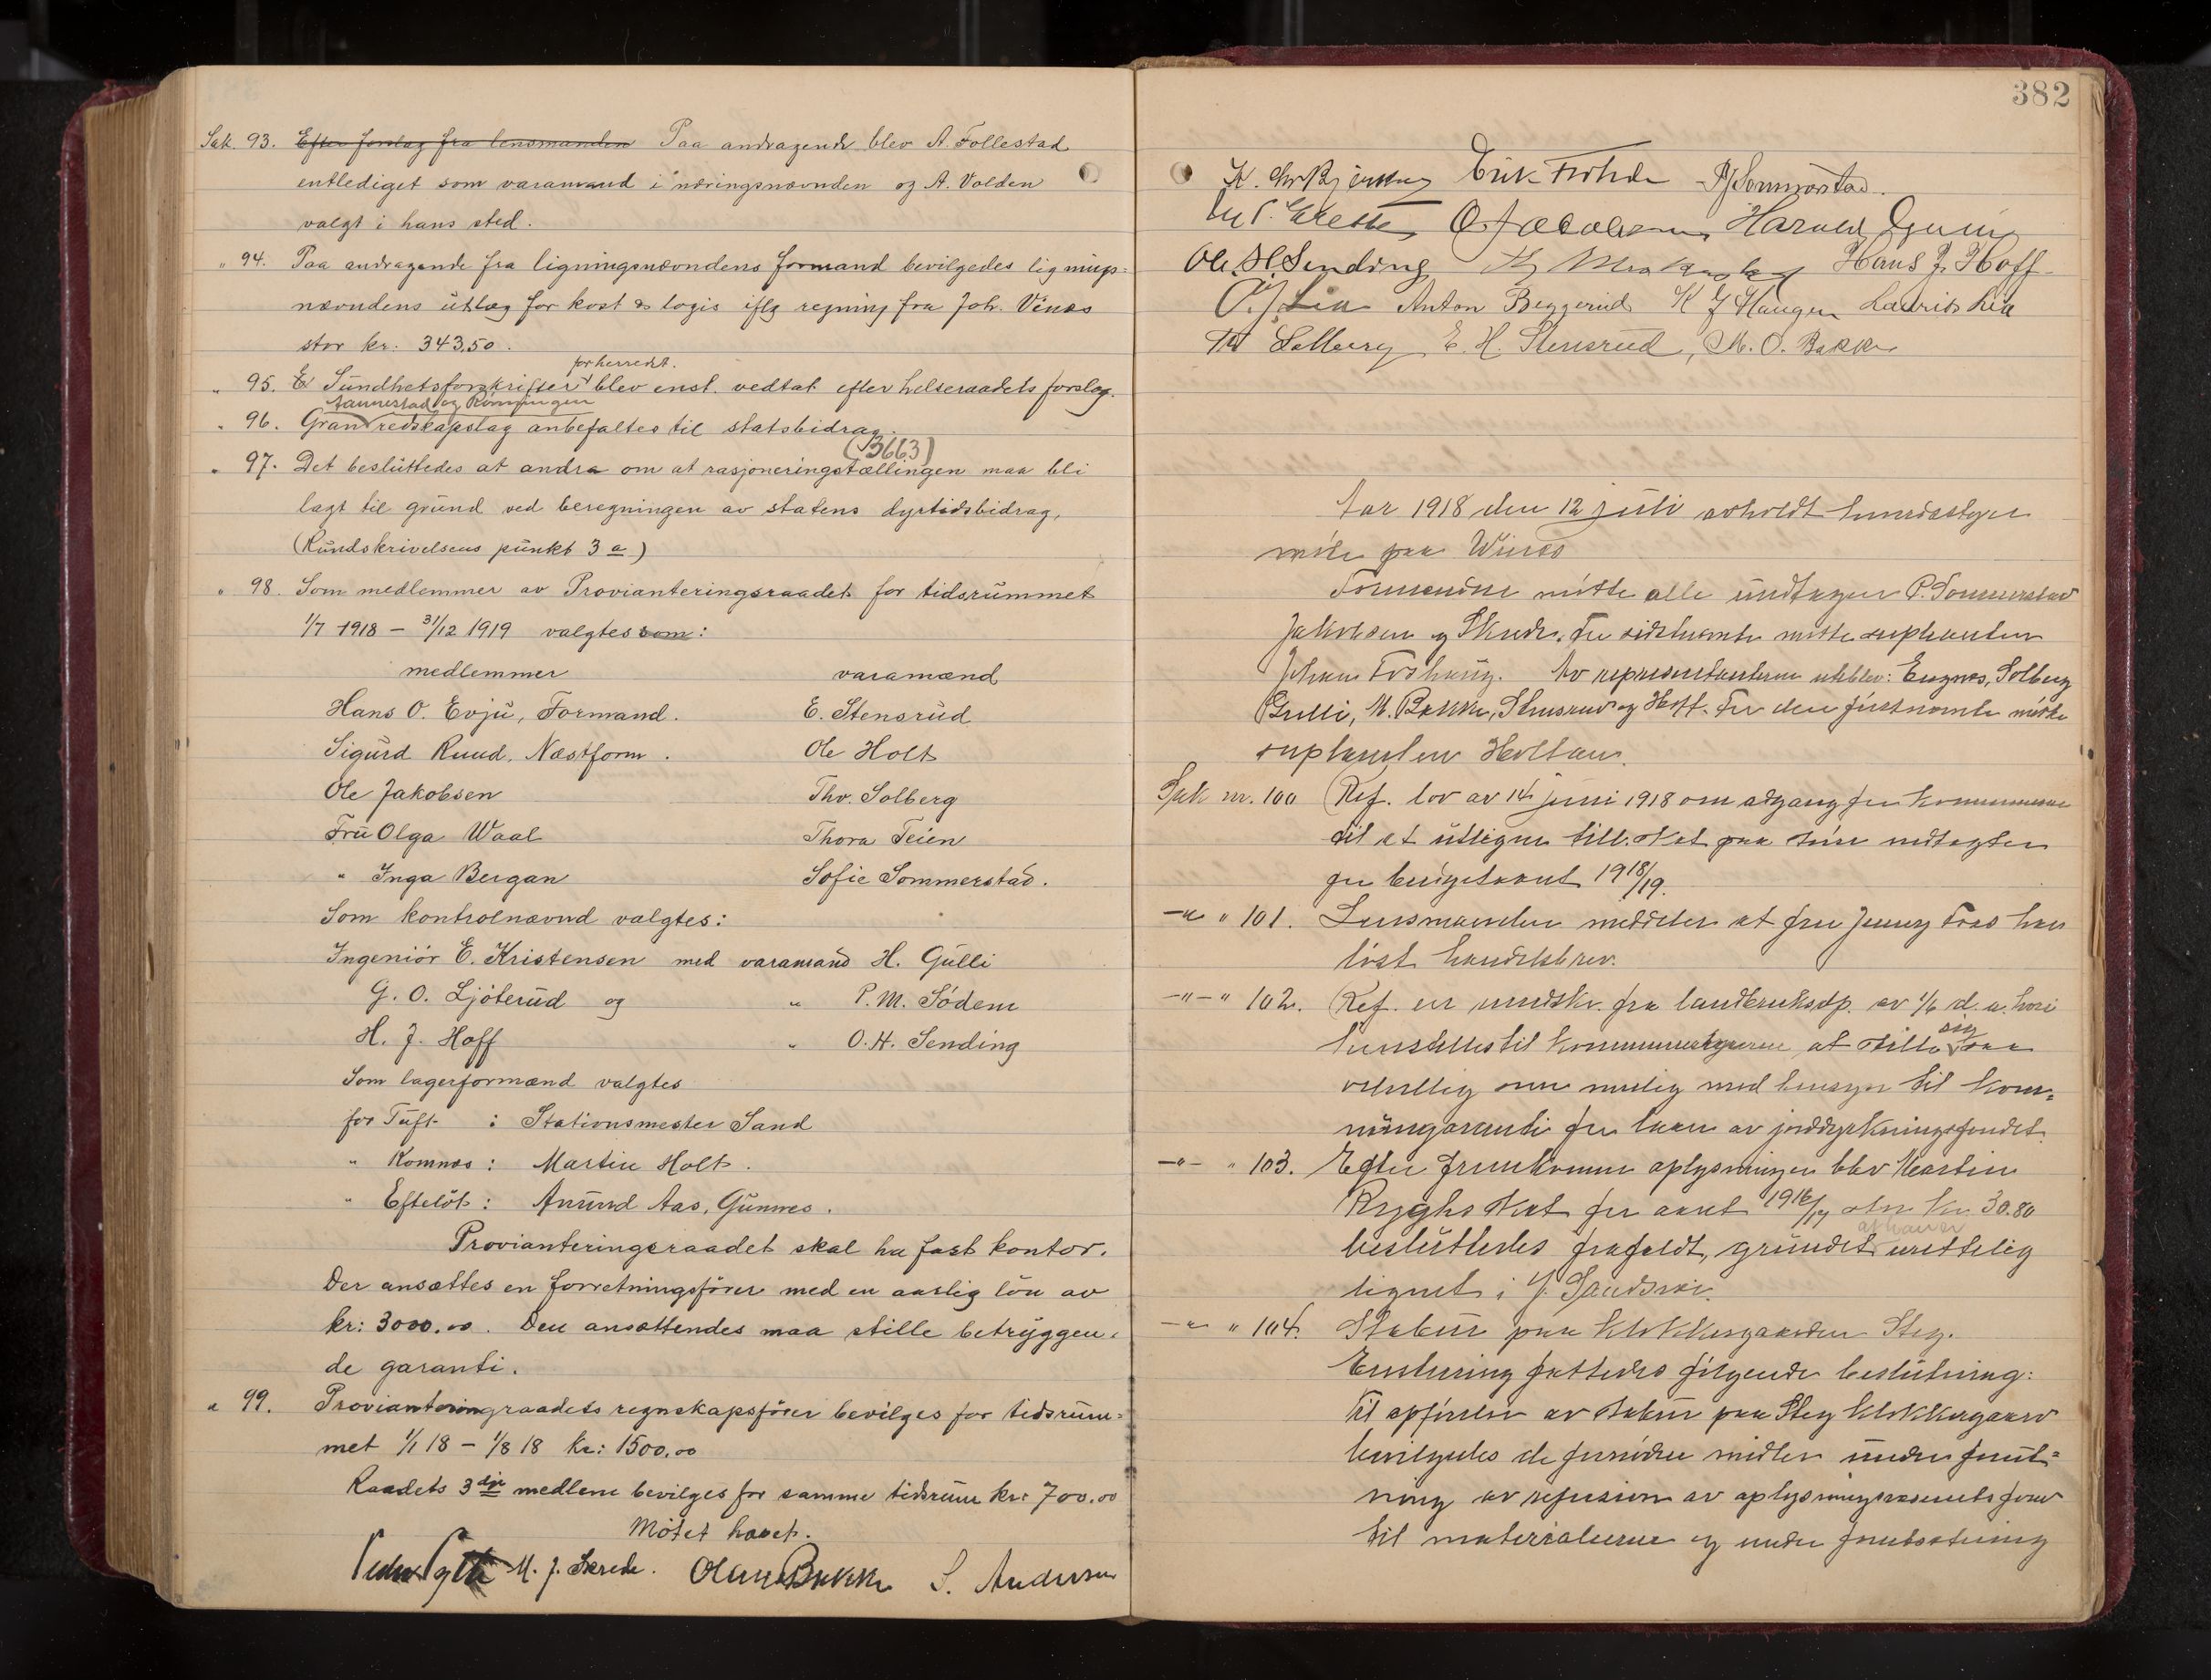 Sak. 93. Efter forslag fra lensmanden Paa andragende blev A. Follestad
entlediget som varamand i næringsnævnden og A. Volden
valgt i hans sted.
" 94. Paa andragende fra ligningsnævndens formand bevilgedes lignings=
nævndens utlæg for kost & logis iflg regning fra Joh. Vinæs
stor kr. 343,50.
for herredet.
" 95. Sundhetsforskrifter blev enst. vedtat efter helseraadets forslag.
Sannestad og Rønningen
" 96. Gran redskapslag anbefaltes til statsbidrag.
(3663)
" 97. Det besluttedes at andra om at rasjoneringstællingen maa bli
lagt til grund ved beregningen av statens dyrtidsbidrag,
(Rundskrivelsens punkt 3 a)
" 98. Som medlemmer av Provianteringsraadet for tidsrummet
1/7 1918 – 31/12 1919 valgtes som:
medlemmer varamænd
Hans O. Evju, Formand. E. Stensrud
Sigurd Ruud, Næstform. Ole Holt
Ole Jakobsen Thv. Solberg
Fru Olga Waal Thora Teien
" Inga Bergan Sofie Sommerstad.
Som kontrolnævnd valgtes:
Ingeniör E. Kristensen med varamand H. Gulli
G. O. Ljöterud og " P. M. Södem
H. J. Hoff " O. H. Sending
Som lagerformænd valgtes
for Tuft : Stationsmester Sand
" Komnæs : Martin Holt.
" Efteløt : Anund Aas, Gunnes.
Provianteringsraadet skal ha fast kontor.
Der ansættes en forretningsfører med en aarlig løn av
kr: 3000.00. Den ansættendes maa stille betryggen=
de garanti.
" 99. Provianteringraadets regnskapsfører bevilges for tidsrum=
met 1/1 18 – 1/8 18 kr: 1500.00
Raadets 3 dje medlem bevilges for samme tidsrum kr: 700.00
Møtet hævet.
M. J. Skrede. Olaus Bakke S. Andersen
382
K. Chr Bjerknes Erik P. Sommerstad.
O Jacobsen Harald
Ole H. Sending Hans J. Hoff
O. J. Lia Anton Beggerud K J Haugen Laurits Lia
Th Solberg E. H. Stensrud, M. O. Bakke
Aar 1918 den 12 juli avholdt herredsstyret
møte paa Winæs
Formændene møtte alle undtagen P. Sommerstad
Jakobsen og Skrede. For sidstnævnte møtte suplianten
Johan Foshaug. Av representanterne uteblev: Engnes, Solberg
Gulli, M. Bakke, Stensrud og Hoff. For den førstnævnte møtte
suplianten Holtan.
Sak nr. 100 Ref. lov av 14 juni 1918 om adgang for kommunerne
til at utligne till. skat paa større indtægter
for budgetaaret 1918/19.
–"– " 101. Lensmanden meddeler at fru Jenny Foss har
løst handelsbrev.
–"– " 102. Ref. en rundskr. fra landbruksdp. av 1/6 d. a. hvori
sig
henstilles til kommunestyrerne at stille saa
velvillig som mulig med hensyn til kom=
munegaranti for laan av jorddyrkningsfondet.
–"– " 103. Efter fremkomne oplysninger blev Martin
Ryghs skat for aaret 1916/17 stor kr. 30.80
at han er
besluttedes frafaldt, grundet urettelig
lignet i Y. Sandsvær.
–"– " 104. Stabur paa klokkergaarden Steg.
Enstemmig fattedes følgende beslutning:
Til opførelse av stabur paa Steg klokkergaard
bevilgedes de fornødne midler under forut=
ning av refusion av oplysningsvæsenets fond
til materialerne og under forutsætning